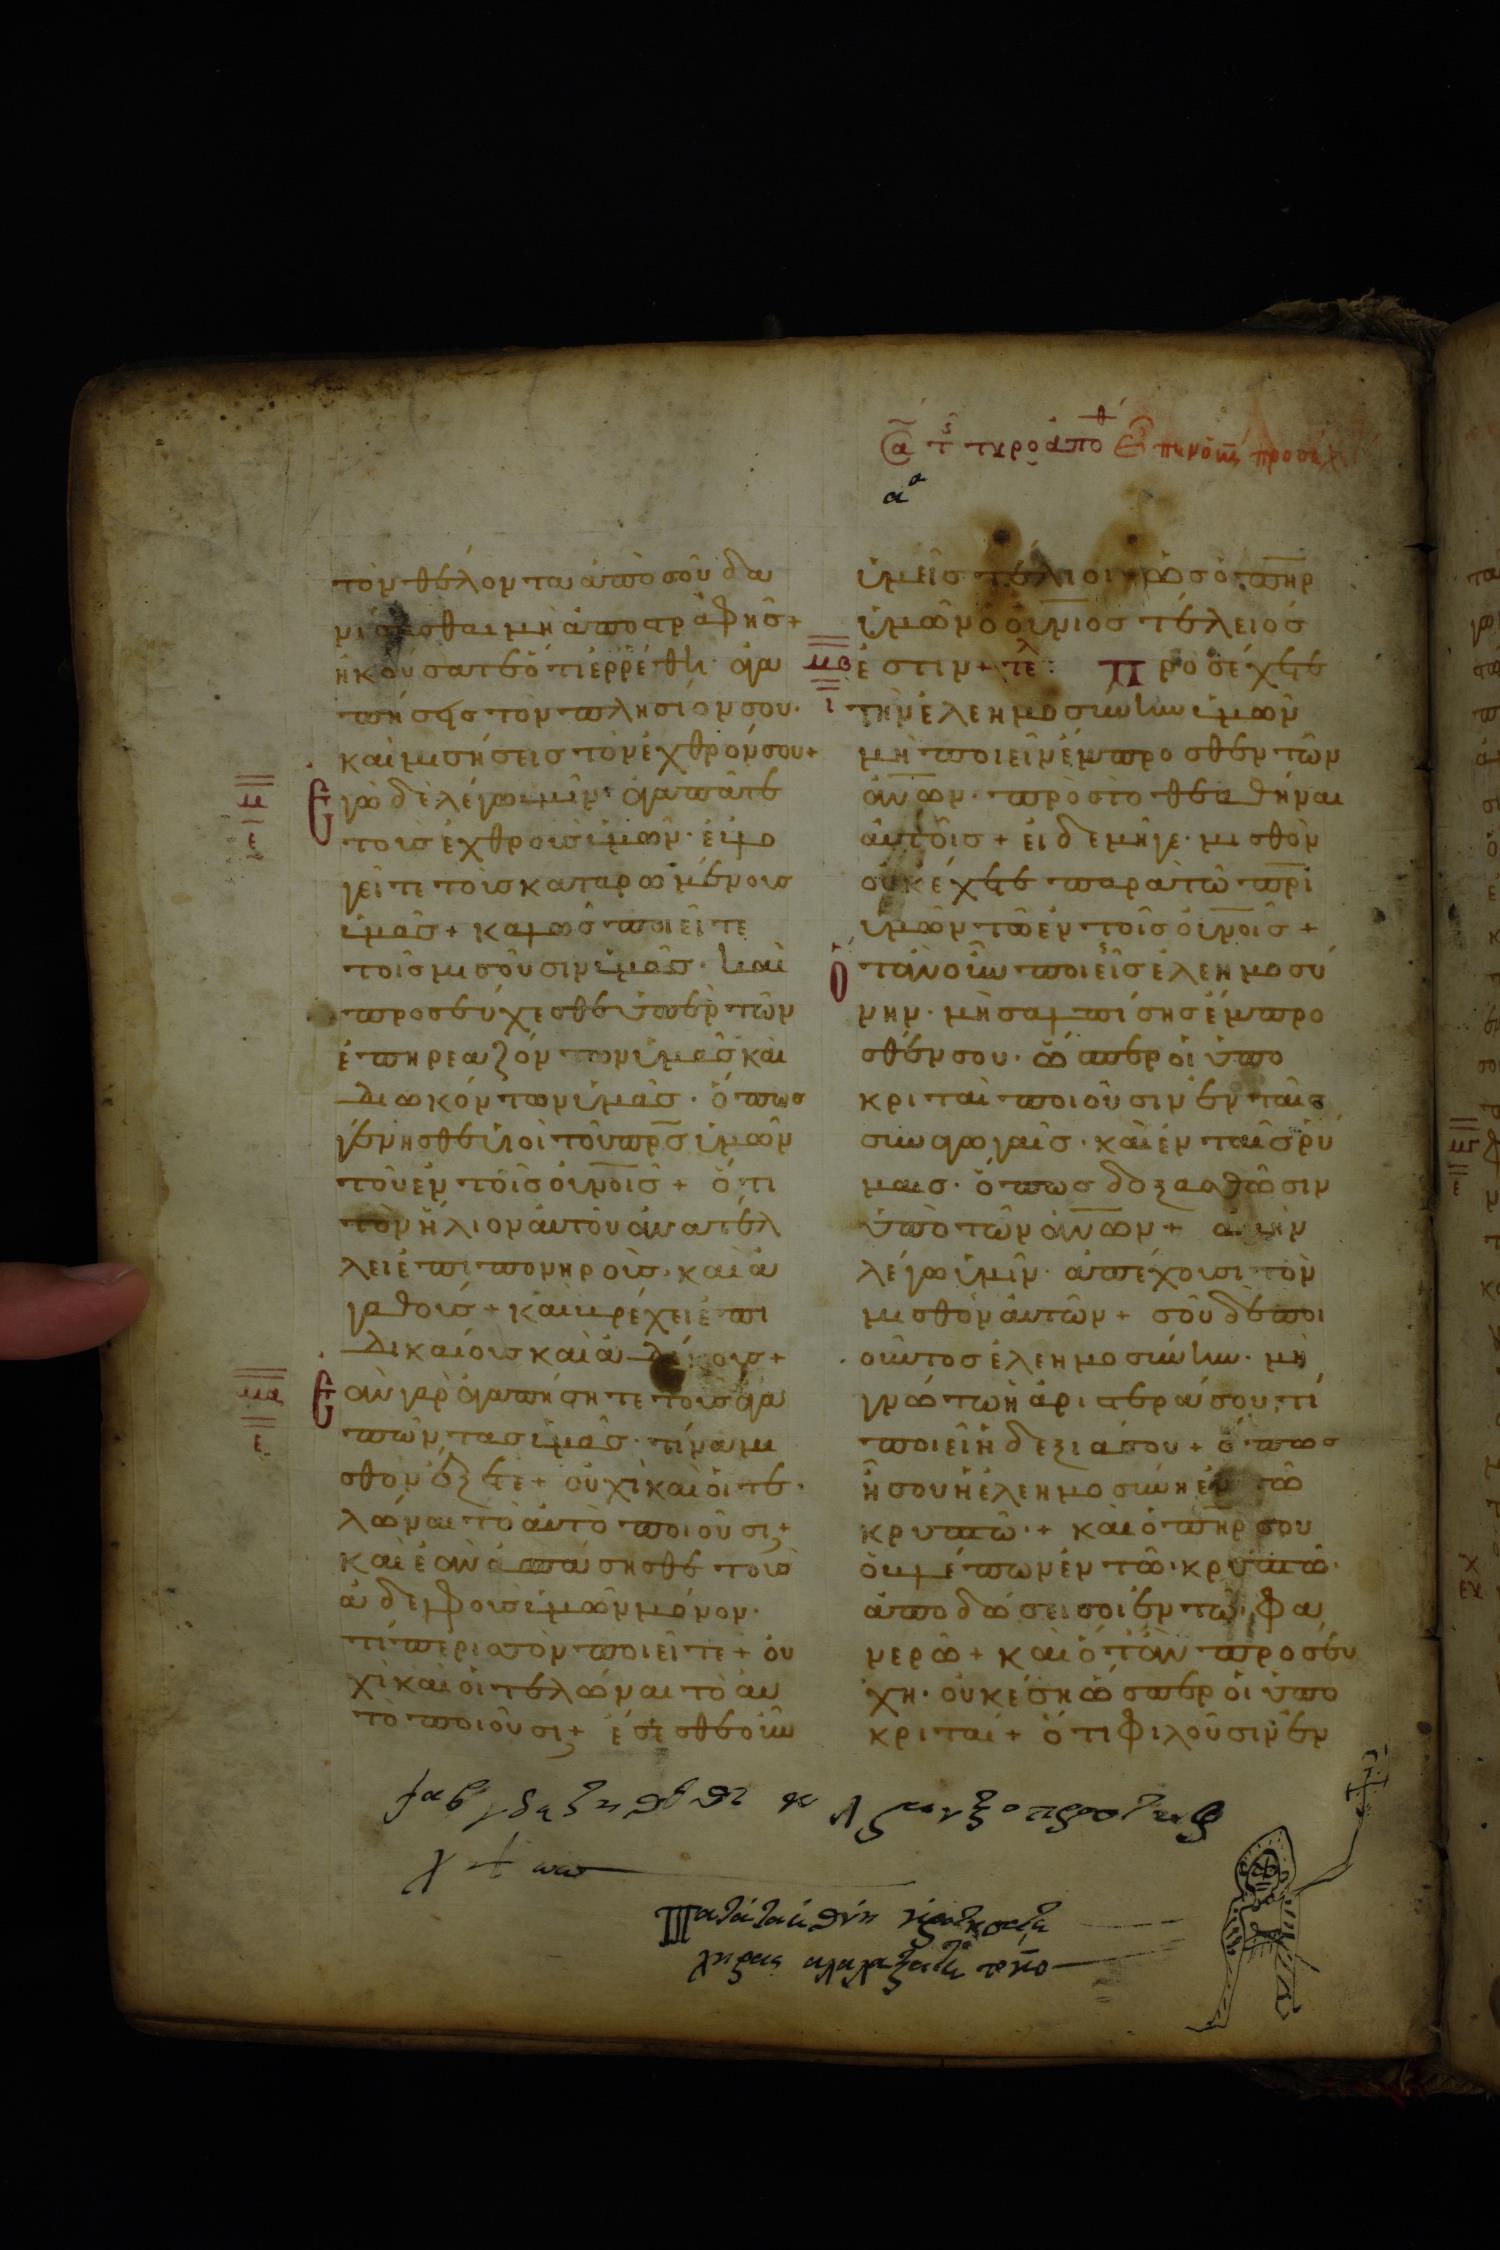 τὸν θέλοντα ἀπὸ σοῦ δα
νίσασθαι μὴ ἀποστραφῆς+
ἠκούσατε ὅτι ἐρρέθη· ἀγα
πήσεις τὸν πλησίον σου·
καὶ μισήσεις τὸν ἐχθρόν σου+
Ἐγὼ δὲ λέγω ὑμῖν· ἀγαπᾶτε
τοὺς ἐχθροὺς ὑμῶν· εὐλο
γεῖτε τοὺς καταρωμένους
ὑμᾶς+ καλῶς ποιεῖτε
τοῖς μισοῦσιν ὑμᾶς· καὶ
προσεύχεσθε ὑπὲρ τῶν
ἐπηρεαζόντων ὑμᾶς καὶ
διωκόντων ὑμᾶς· ὅπως
γένησθε υἱοὶ τοῦ πρς ὑμῶν
τοῦ ἐν τοῖς οὐνοῖς+ ὅτι
τὸν ἥλιον αὐτοῦ ἀνατέλ
λει ἐπὶ πονηροὺς· καὶ ἀ
γαθοὺς+ καὶ βρέχει ἐπὶ
δικαίους καὶ ἀδίκους+
Ἐὰν γὰρ ἀγαπήσητε τοὺς ἀγα
πῶντας ὑμᾶς· τίνα μι
σθὸν ἔχετε+ οὐχὶ καὶ οἱ τε
λῶναι τὸ αὐτὸ ποιοῦσι;+
καὶ ἐὰν ἀσπάσησθε τοὺς
ἀδελφοὺς ὑμῶν μόνον·
τί περισσὸν ποιεῖτε+ οὐ
χὶ καὶ οἱ τελῶναι τὸ αὐ
τὸ ποιοῦσι;+ ἔσεσθε οὖν
ὑμεῖς τέλιοι· ὥσπερ ὁ πηρ
ὑμῶν ὁ οὐνιος τέλειός
ἐστιν+ τελ: Προσέχετε
τὴν ἐλεημοσύνην ὑμῶν
μὴ ποιεῖν ἔμπροσθεν τῶν
ἀνων· πρὸς τὸ θεαθῆναι
αὐτοῖς+ εἰ δε μήγε· μισθὸν
οὐκ ἔχετε παρὰ τῶ πρι
ὑμῶν τῶ ἐν τοῖς οὐνοῖς+
Ὅταν οὖν ποιεῖς ἐλεημοσύ
νην· μὴ σαλπίσης ἔμπρο
σθέν σου· ὥσπερ οἱ ὑπο
κριταὶ ποιοῦσιν ἐν ταῖς
συναγωγαῖς· καὶ ἐν ταῖς ῥύ
μαις· ὅπως δοξασθῶσιν
ὑπὸ τῶν ἀνων+ ἀμὴν
λέγω ὑμῖν· ἀπέχουσι τὸν
μισθὸν αὐτῶν+ σοῦ δὲ ποι
οῦντος ἐλεημοσύνην· μὴ
γνώτω ἡ ἀριστερά σου· τί
ποιεῖ ἡ δεξιά σου+ ὅπως
ἦ σου ἡ ἐλεημοσύνη ἐν τῶ
κρυπτῶ·+ καὶ ὁ πηρ σου
ὁ βλέπων ἐν τῶ κρυπτῶ·
ἀποδώσει σοι ἐν τῶ φα
νερῶ+ καὶ ὅταν προσεύ
χη· οὐκ ἔση ὥσπερ οἱ ὑπο
κριταί+ ὅτι φιλοῦσιν ἐν